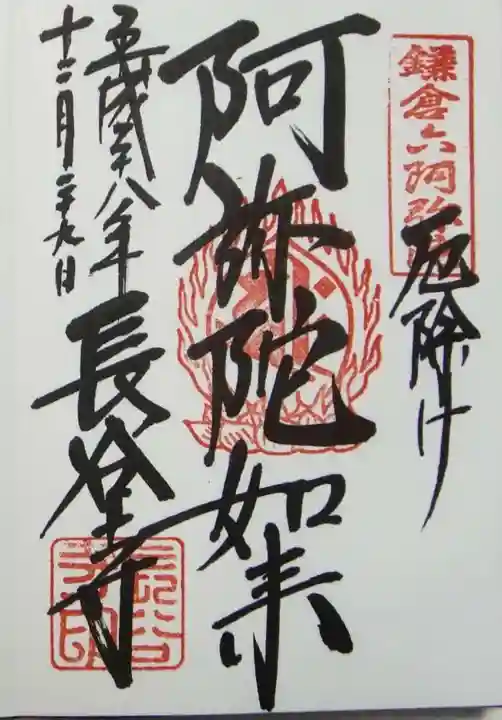 鎌倉六阿弥陀
厄除け
阿弥陀如来
平成二十八年
十二月二十九日
長谷寺